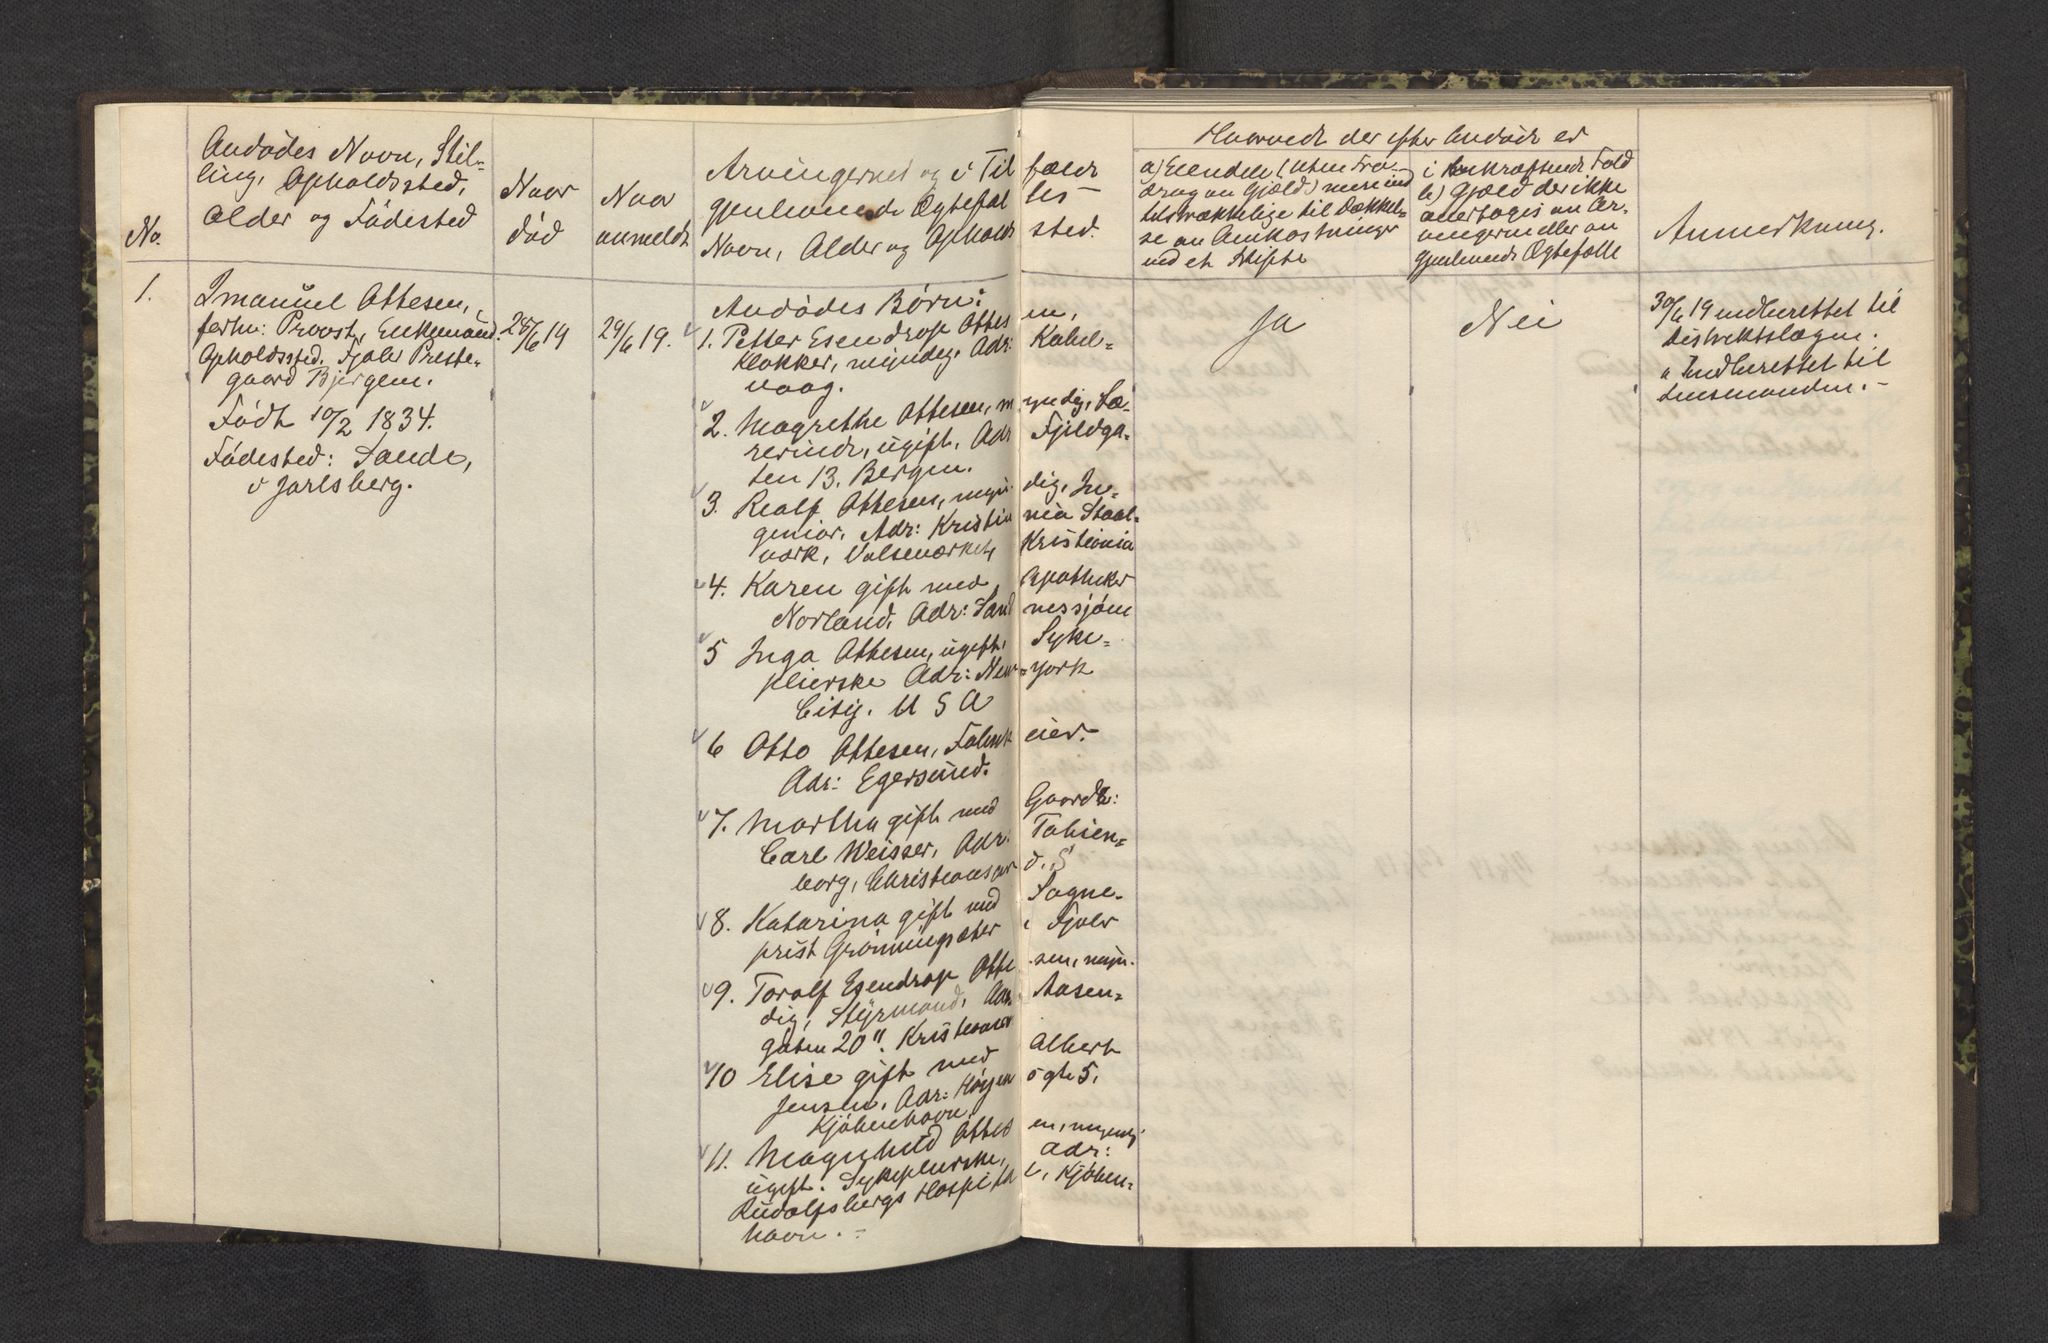 No.
Andødes Navn, Stil-
ling, Opholdssted,
Alder og Fødested
Naar
død
Naar
anmeldt
Arvingernes og i Tilfælde
gjenlevende Ægtefælles
Navn, Alder og Opholdssted.
Hvorvidt der efter Andøde er
a) Eiendele (uten Fra-
drag av Gjæld) mere end
tilstrækkelige til Dækkel-
se av Omkostninger
ved et Skifte
i bekræftende Fald
b) Gjæld der ikke
overtages av Ar-
vingerne eller av
gjenlevende Ægtefælle
Anmerkning.
1.
Imanuel Ottesen,
forhv: Provst, Enkemand.
Opholdssted, Fjaler Preste-
gaard Bjergem.
Født 10/2 1834.
Fødested: Sande,
i Jarlsberg.
28/6 19
29/6 19.
Andødes Børn:
1. Petter Esendrop Ottesen,
Klokker, myndig. Adr: Kabel-
vaag.
2. Magrethe Ottesen, myndig, Læ-
rerinde, ugift. Adr Fjeldga-
ten 13. Bergen.
3. Rolf Ottesen, myndig, In-
geniør. Adr: Kristiania Staal-
værk, Valseværket, Kristiania
4. Karen gift med Apotheker
Norland. Adr: Sandnessjøen
5 Inga Ottesen, ugift, Syke-
pleierske Adr: New-York
City. U S A
6 Otto Ottesen, Fabrikeier.
Adr: Egersund.
7. Martha gift med Gaardb:
Carl Weisser, Adr. Tobien-
borg, Christianssand. S
8. Katarina gift med Sogne-
prest Grønningsæter i Fjaler
9. Toralf Esendrop Ottesen, myn-
dig, Styrmand, Adr. Aasen-
gaten 20". Kristiania
10 Elise gift med Albert
Jensen. Adr: Korsørgt 5,
Kjøbenhavn.
11. Magnhild Ottesen, myndig
ugift. Sykepleierske, Adr:
Rudolfsbergs Hospital, Kjøben-
havn. -
Ja
Nei
30/6 19 indberettet til
Distriktslægen.
" Indberettet til
Lensmanden. -